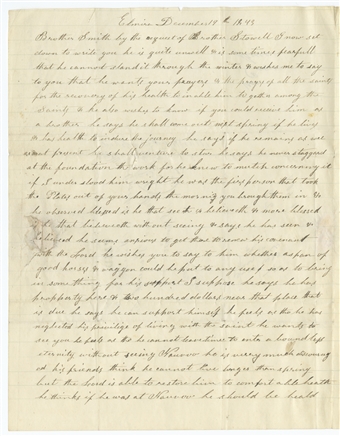 Elmira December 19th 1843
Brother Smith by the request of Brother Stowell I now set
down to write you he is quite unwell & is some times fearfull
that he cannot stand it through the winter & wishes me to say
to you that he wants your prayers & the prayers of all the saints
for the recovery of his health to enable him to gather among the
Saints & he also wishes to know if you could receive him as
a brother he says he shall come out next spring if he lives
& has health to endure the journey he says if he remains as well as
present he shall venture to star he says he never staggered
at the foundation of the work for he knew to much concerning it
if I understood him wright he was the first person that took
the Plates out of your hands the morning you brought them in &
he observed blessed is he that seeth & believeth & more blessed
is he that believeth without seeing & says he has seen &
believed he seems anxious to get there to renew his covenant
with the Lord he wishes you to say to him whether a span of
good horses & waggon could be put to any use so as to bring
in some thing for his support I suppose he says he has
property here & two hundred dollars near that place that
is due he says he can support himself he feels as tho he has
neglected his privilege of living with the saints he wants to
see you he feels as tho he cannot leave time to enter a boundless
eternity without seeing Nauvoo he is very much
his friends think he cannot live longer than spring
but the Lord is able to restore him to comfortable health
he thinks if he was at Nauvoo he should be heald